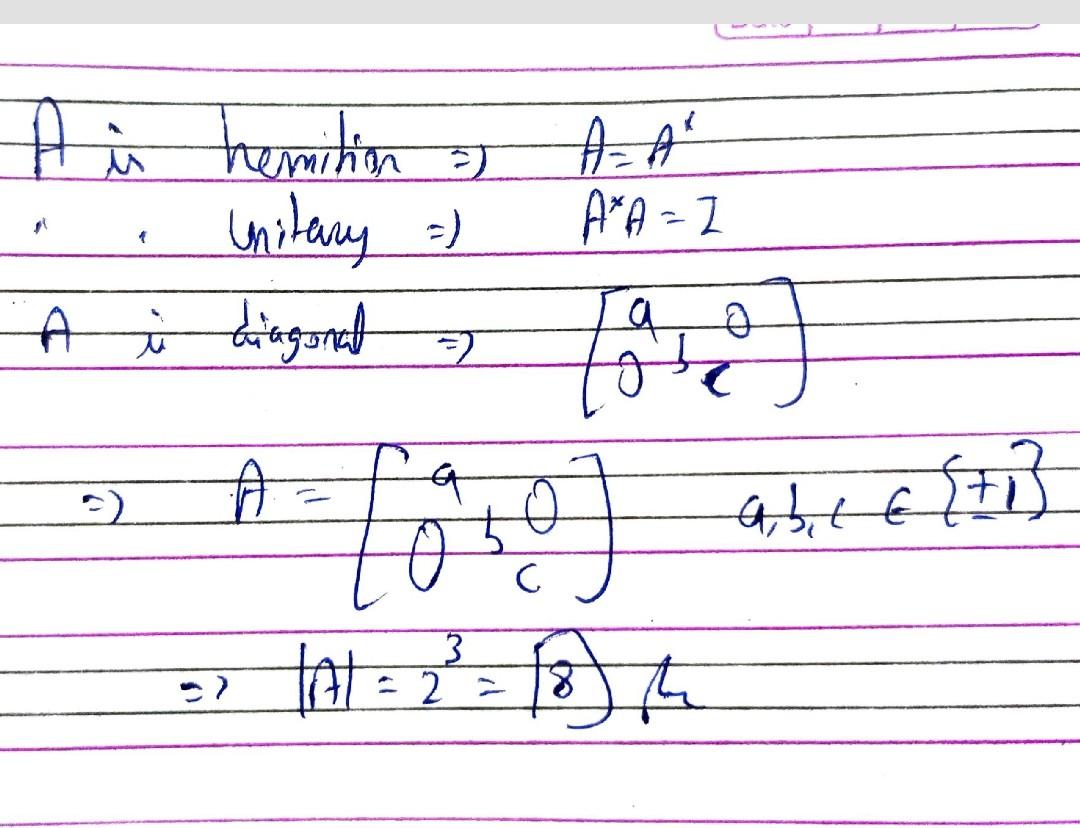 A is hermition => A = A*
" " Unitary => A*A = I
A is diagonal => [a 0 b 0 c]
=> A = [a 0 b 0 c] a, b, c ∈ {±1}
=> |A| = 2³ = 8